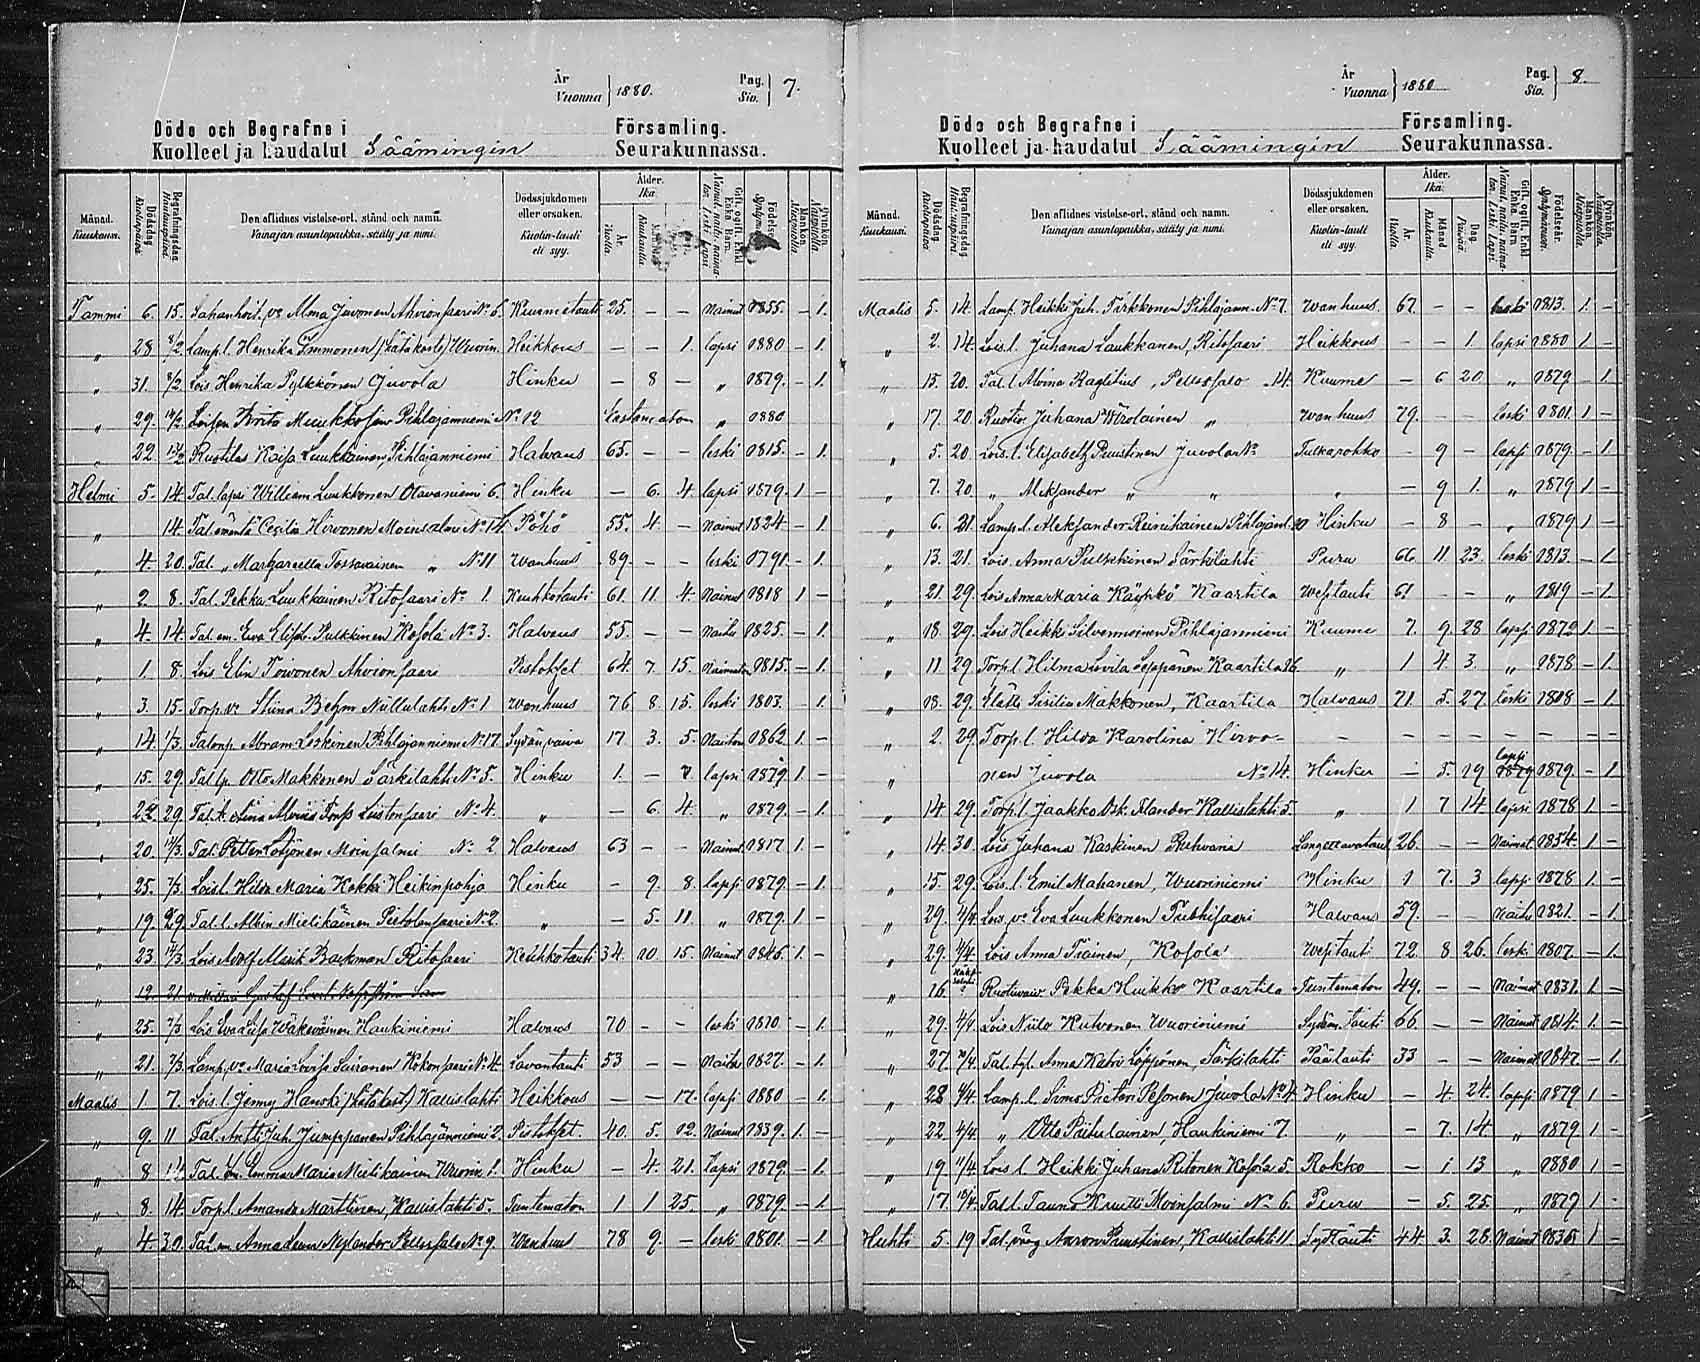 År
Vuonna } 1880.
Pag.
Siv. } 7.
Döde och Begrafne i Församling.
Kuolleet ja haudatut Säämingin Seurakunnassa.
Månad. Kuukausi.
Dödsdag. Kuolinpäivä.
Begrafningsdag. Hautauspäivä.
Den aflidnes vistelse-ort, stånd och namn. Vainajan asuntopaikka, sääty ja nimi.
Dödssjukdomen eller orsaken. Kuolin-tauti eli syy.
Ålder. Ikä.
År. Vuotta.
Kuukautta.
Födelseår. Syntymävuosi.
Mankön. Miespuolia.
Qvinkön. Naispuolia.
Tammi 6. 15. Alma Juvonen Ahvionsaari No 6. Kuumetauti 25. – – Nainut 1855. – 1.
„ 28 8/2. Lamp. l. Henrika Immonen (hätäkast.) Wuorin. Heikkous – – 1. lapsi 1880 – 1.
„ 31. 8/2. Lois Henrika Pylkkönen Juvola Hinku – 8 – „ 1879. – 1.
„ 29. Loisen Brita Muukkosen Pihlajanniemi No 12 Kastamaton „ 1880
„ 22 Ruotilas Kaisa Luukkainen, Pihlajanniemi Halvaus 65. – – leski 1815. – 1.
Helmi 5. 14. Tal. lapsi William Luukkonen Otavaniemi 6. Hinku – 6. 4. lapsi 1879. 1 –
„ 14. Tal. emäntä Cecilia Hirvonen Moinsalmi No 14. Pöhö 55. 4. – Nainut 1824 – 1.
„ 4. 20. Tal. „ Margareetta Tossavainen „ No 11 Wanhuus 89. – – leski 1791. – 1.
„ 2. 8. Tal. Pekka Luukkainen Ritosaari No 1. Keuhkotauti 61. 11 4. Nainut 1818 1 –
„ 4. 14. Tal. em. Eva Elisab. Pulkkinen Kosola No 3. Halvaus 55. – – Naitu 1825. – 1.
„ 1. 8. Lois Elin Toivonen Ahvionsaari Pistokset 64. 7. 15. Naimaton 1815. – 1.
„ 3. 15. Torp. v:o Stiina Behm Niittulahti No 1 Wanhuus 76 8. 15. leski 1803. – 1.
„ 14. 1/3. Talonp. Abram Loikinen, Pihlajanniemi No 17. Sydän vaiva 17 3. 5. Naiton 1862 1. –
„ 15. 29. Tal. lp. Otto Makkonen Särkilahti No 5. Hinku 1. – lapsi 1879 – 1.
„ 22 29 No 4. „ – 6 4. „ 1879. – 1.
„ 20. Tal. Petter Moinsalmi No 2 Halvaus 63 – – Nainut 1817 1. –
„ 25. 7/3. Lois l. Hilda Maria Kokki Heikinpohja Hinku – 9. 8. lapsi 1879 – 1.
„ 19. 29. Tal. l. Albin Mielikäinen Pietolansaari No 2. „ – 5. 11. „ 1879. 1. –
„ 23. 14/3. Lois Adolf Backman Ritosaari Keuhkotauti 34. 10 15. Nainut 1845. 1. –
12. 21.
„ 25. 7/3 Lois Eva Liisa Wäkeväinen Haukiniemi Halvaus 70 – – leski 1810. – 1.
„ 21. 7/3. Lamp. v:o Maria Lovisa Sairanen Kokonsaari No 4. Lavantauti 53 – – Naitu 1827. – 1.
Maalis 1 7. Lois l. Jenny Hauski (hätäkast.) Kallislahti Heikkous – – 17. lapsi 1880 – 1.
„ 9. 11 Tal. Antti Juh. Jumppanen Pihlajanniemi 2. Pistokset. 40. 5. 12. Nainut 1839. 1. –
„ 8 14 Tal. Emma Maria Mielikäinen Wuorin. 1. Hinku – 4. 21. lapsi 1879. – 1.
„ 8. 14. Torp. l. Amanda Marttinen, Kallislahti 5. Tuntematon 1 1 25. „ 1879. – 1.
„ 4. 30. Tal. em. Nylander Pellossalo No 9. Wanhuus 78 9. – leski 1801. – 1.
År
Vuonna } 1880
Pag.
Siv. } 8.
Döde och Begrafne i Församling.
Kuolleet ja haudatut Säämingin Seurakunnassa.
Månad. Kuukausi.
Dödsdag. Kuolinpäivä.
Begrafningsdag. Hautauspäivä.
Den aflidnes vistelse-ort, stånd och namn. Vainajan asuntopaikka, sääty ja nimi.
Dödssjukdomen eller orsaken. Kuolin-tauti eli syy.
Ålder. Ikä.
År. Vuotta.
Månad. Kuukautta.
Dag. Päivää.
Födelseår. Syntymävuosi.
Mankön. Miespuolia.
Qvinkön. Naispuolia.
Maalis 5. 14. Lamp. Heikki Juh. Tirkkonen Pihlajann. No 7. Wanhuus. 67. – – leski 1813. 1. –
„ 2. 14. Lois. l. Juhana Laukkanen, Ritosaari Heikkous – – 1. lapsi 1880 1 –
„ 15. 20. Tal. l. Alvina Kaglilius, Pellossalo 14. Kuume – 6 20 „ 1879 – 1.
„ 17. 20. Juhana Wärolainen „ Wanhuus 79. – – leski 1801. 1 –
„ 5. 20 Lois. l. Elisabeth Puustinen Juvola No Tulkarokko – 9 – lapsi 1879. – 1
„ 7. 20. „ Aleksander „ „ „ – 9 1. „ 1879 1 –
„ 6. 21. Lamp. l. Aleksander Reinikainen Pihlajanl. 20 Hinku – 8 – „ 1879 1 –
„ 13. 21. Lois. Anna Pulkkinen Särkilahti Puru 66 11 23. leski 1813. – 1.
„ 21. 29. Lois Anna Maria Käyhkö Kaartila Wesitauti 61 – – „ 1819 – 1.
„ 18. 29. Lois Heikki Silvennoinen Pihlajanniemi Kuume 7. 9. 28 lapsi 1872 1. –
„ 11 29 Torp. l. Hilma Lovisa Seppänen Kaartila 26 „ 1 4. 3. „ 1878 – 1.
„ 18. 29. Elätti Sisilia Makkonen, Kaartila Halvaus 71 5. 27. leski 1808 – 1.
„ 2. 29. Torp. l. Hilda Karolina Hirvo-
nen Juvola No 14. Hinku – 5. 19 lapsi 1879. – 1
„ 14 29. Torp. l. Jaakko Osk. Kallislahti 5. „ 1 7 14. lapsi 1878 1 –
„ 14. 30. Lois Juhana Kaskinen Ruhvana 26. – – Nainut 1854. 1. –
„ 15. 29. Lois. l. Emil Mahanen, Wuoriniemi Hinku 1 7. 3 lapsi 1878 1. –
„ 29. 4/4. Lois. v:o Eva Luukkonen Halvau 59. – – Naitu 1821. – 1
„ 29. 4/4. Lois Anna Tiainen, Kosola Wesitauti 72 8 26. leski 1807. – 1.
„ 16. Pekka Huikko Kaartila Tuntematon 49. – – Nainut 1831. 1. –
„ 29. 4/4. Lois Niilo Kutvonen Wuoriniemi Sydän. tauti 66. – – Nainut 1814. 1. –
„ 27. Anna Katri Löppönen, Särkilahti Päätauti 33 – – Nainut 1847. – 1.
„ 28 4/4. Lamp. l. Simo Pietari Pesonen Juvola No 4. Hinku – 4. 24. lapsi 1879 1 –
„ 22. 4/4. „ Otto Haukiniemi 7. „ – 7. 14. „ 1879 1 –
„ 19 Lois l. Heikki Juhana Ritonen Kosola 5. Rokko – 1 13 „ 1880 1 –
„ 17. 18/4. Tal. l. Tauno Moinsalmi No 6. Puru – 5. 25. „ 1879 1 –
Huhti 5. 19 Aaron Puustinen, Kallislahti 11 Syd. tauti 44 3. 28. Nainut 1835 1 –